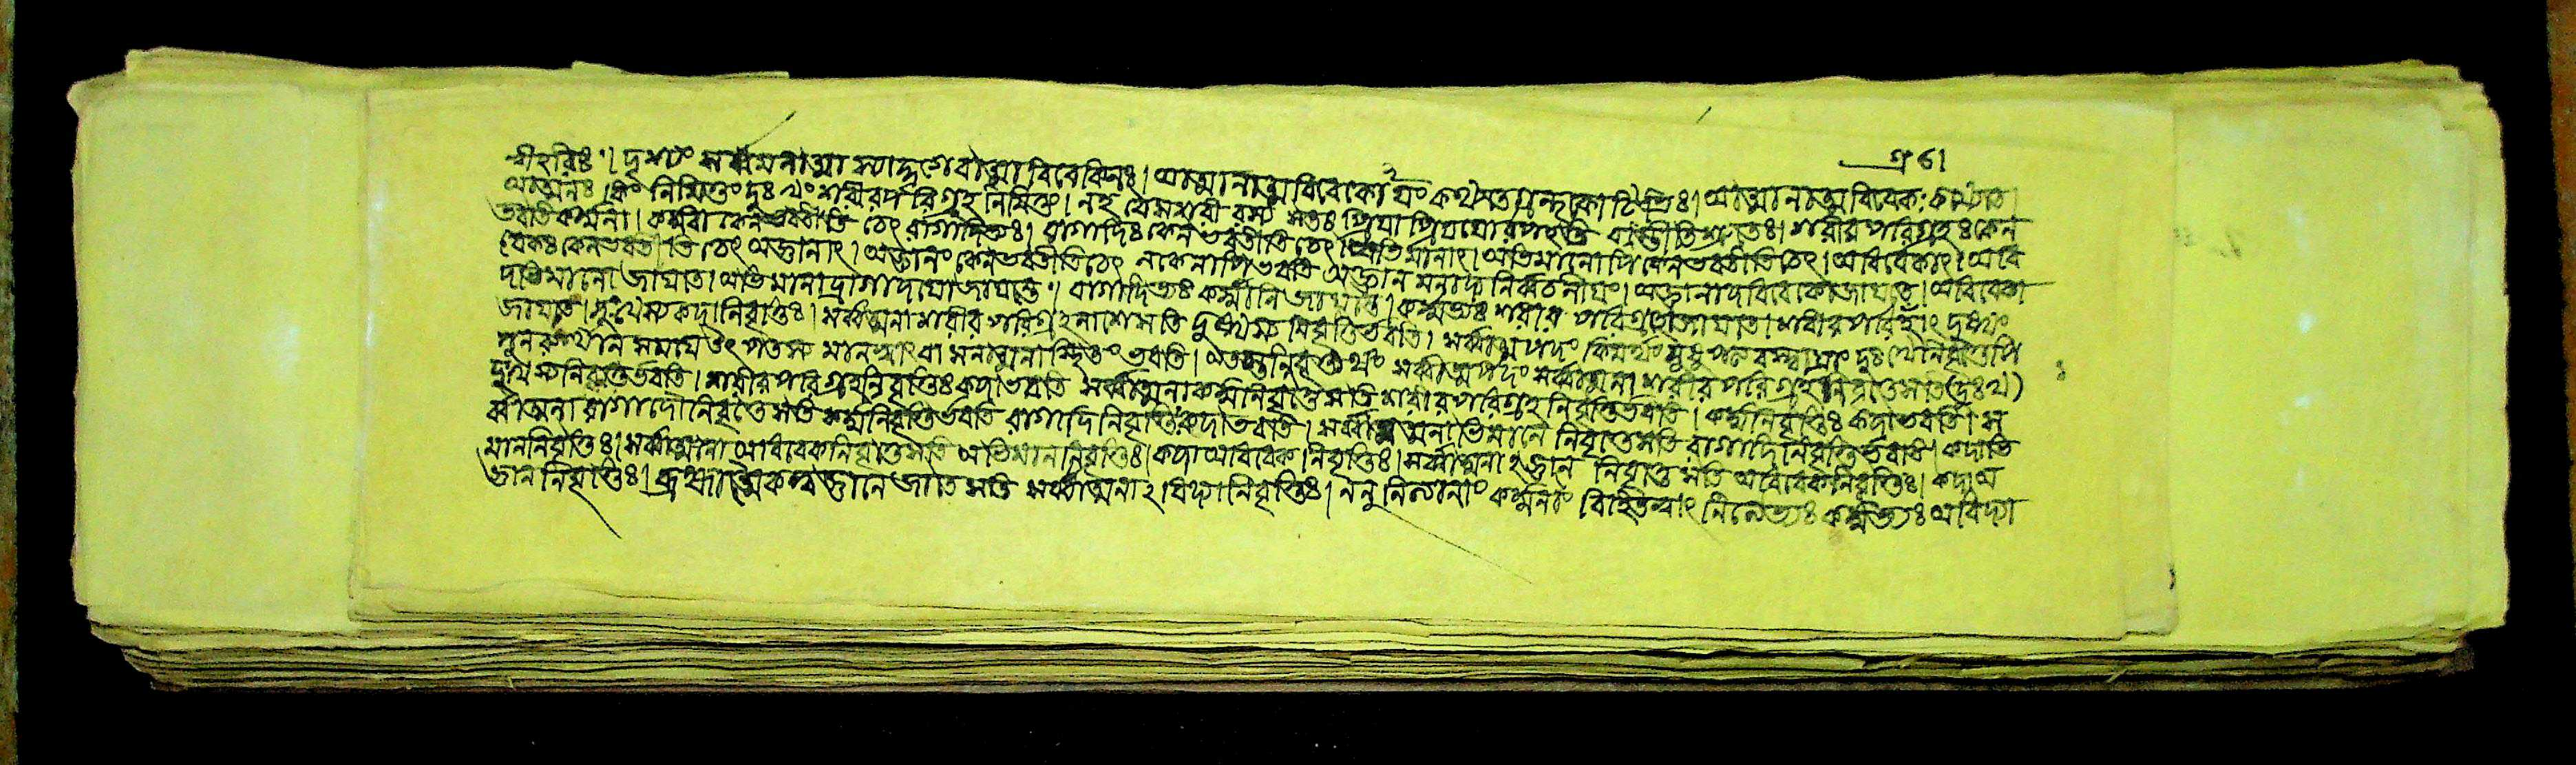 শ্রীহরিঃ। দৃশ্যং সর্ব্বমনাত্মা স্যাদ্দৃগেবাত্মা বিবেকিনঃ। আত্মানাত্মবিবেকোঽয়ং কথিতো গ্রন্থকোটিভিঃ। আত্মানাত্মবিবেকঃ কথ্যতে।
আত্মনঃ কিং নিমিত্তং দুঃখং শরীরপরিগ্রহনিমিত্তং। নহ বৈ সশরীরস্য সতঃ প্রিয়াপ্রিয়য়োরপহতিরস্তীতি শ্রুতেঃ। শরীরপরিগ্রহঃ কেন
ভবতি কর্ম্মনা। কর্ম্ম বা কেন ভবতীতি চেৎ রাগাদিভ্যঃ। রাগাদিঃ কেন ভবতীতি চেৎ অভিমানাৎ। অভিমানোপি কেন ভবতীতি চেৎ। অবিবেকাৎ। অবি
বেকঃ কেন ভবতীতি চেৎ অজ্ঞানাৎ। অজ্ঞানং কেন ভবতীতি চেৎ ন কেনাপি ভবতি অজ্ঞানমনাদ্যনির্ব্বচনীয়ং। অজ্ঞানাদবিবেকো জায়তে। অবিবেকা
দভিমানো জায়তে। অভিমানাদ্রাগাদয়ো জায়ন্তে। রাগাদিভ্যঃ কর্ম্মানি জায়ন্তে। কর্ম্মভ্যঃ শরীরপরিগ্রহো জায়তে। শরীরপরিগ্রহাৎ দুঃখং
জায়তে। দুঃখস্য কদা নিবৃত্তিঃ। সর্ব্বাত্মনা শরীরপরিগ্রহনাশে সতি দুঃখস্য নিবৃত্তির্ভবতি। সর্ব্বাত্মপদং কিমর্থং সুষুপ্ত্যবস্থায়াং দুঃখে নিবৃত্তেপি
পুনরুত্থানসময়ে উৎপত্স্যমানত্বাৎ বাসনাত্মনা স্থিতং ভবতি। অতস্তন্নিবৃত্ত্যর্থং সর্ব্বাত্মপদং সর্ব্বাত্মনা শরীরপরিগ্রহনিবৃত্তে সতি দুঃখ
দুঃখস্য নিবৃত্তির্ভবতি। শরীরপরিগ্রহনিবৃত্তিঃ কদা ভবতি সর্ব্বাত্মনা কর্ম্মনিবৃত্তে সতি শরীরপরিগ্রহনিবৃত্তির্ভবতি। কর্ম্মনিবৃত্তিঃ কদা ভবতি। স
র্ব্বাত্মনা রাগাদৌ নিবৃত্তে সতি কর্ম্মনিবৃত্তির্ভবতি রাগাদিনিবৃত্তিঃ কদা ভবতি। সর্ব্বাত্মনাভিমানে নিবৃত্তে সতি রাগাদিনিবৃত্তির্ভবতি। কদাভি
মাননিবৃত্তিঃ। সর্ব্বাত্মনা অবিবেকনিবৃত্তে সতি অভিমাননিবৃত্তিঃ। কদা অবিবেকনিবৃত্তিঃ। সর্ব্বাত্মনাঽজ্ঞানে নিবৃত্তে সতি অবিবেকনিবৃত্তিঃ। কদা অ
জ্ঞাননিবৃত্তিঃ। ব্রহ্মাত্মৈকত্বজ্ঞানে জাতে সতি সর্ব্বাত্মনাঽবিদ্যানিবৃত্তিঃ। ননু নিত্যানাং কর্ম্মনাং বিহিতত্বাৎ নিত্যেভ্যঃ কর্ম্মভ্যঃ অবিদ্যা